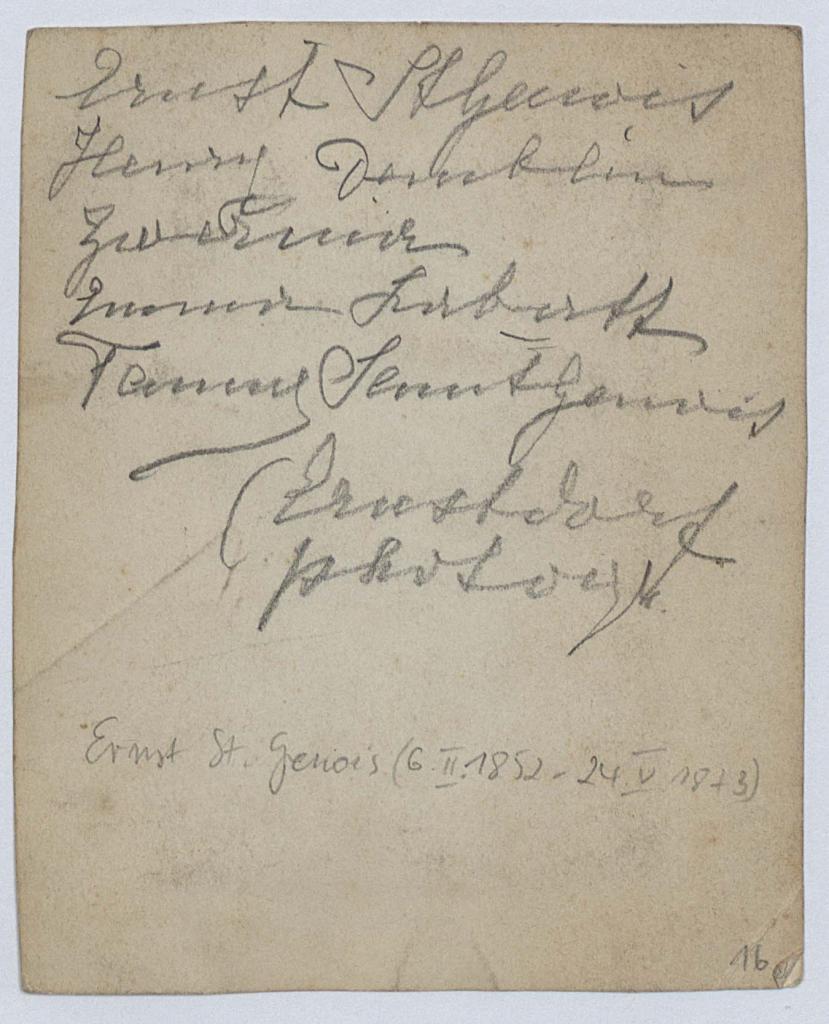 Ernst StGenois
Henry Damblin
Emma Labatt
Fanny SaintGenois
(Ernstdorf
photogr.
Ernst St. Genois (6.II.1852 - 24 V 1873)
16